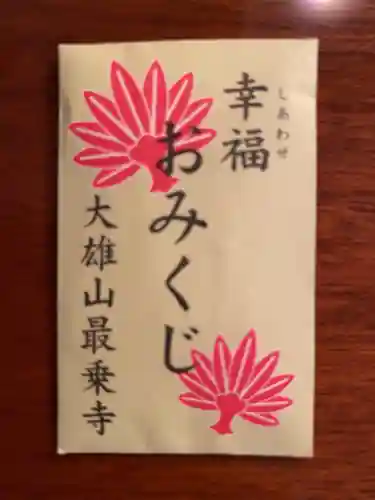 幸福
しあわせ
おみくじ
大雄山最乗寺